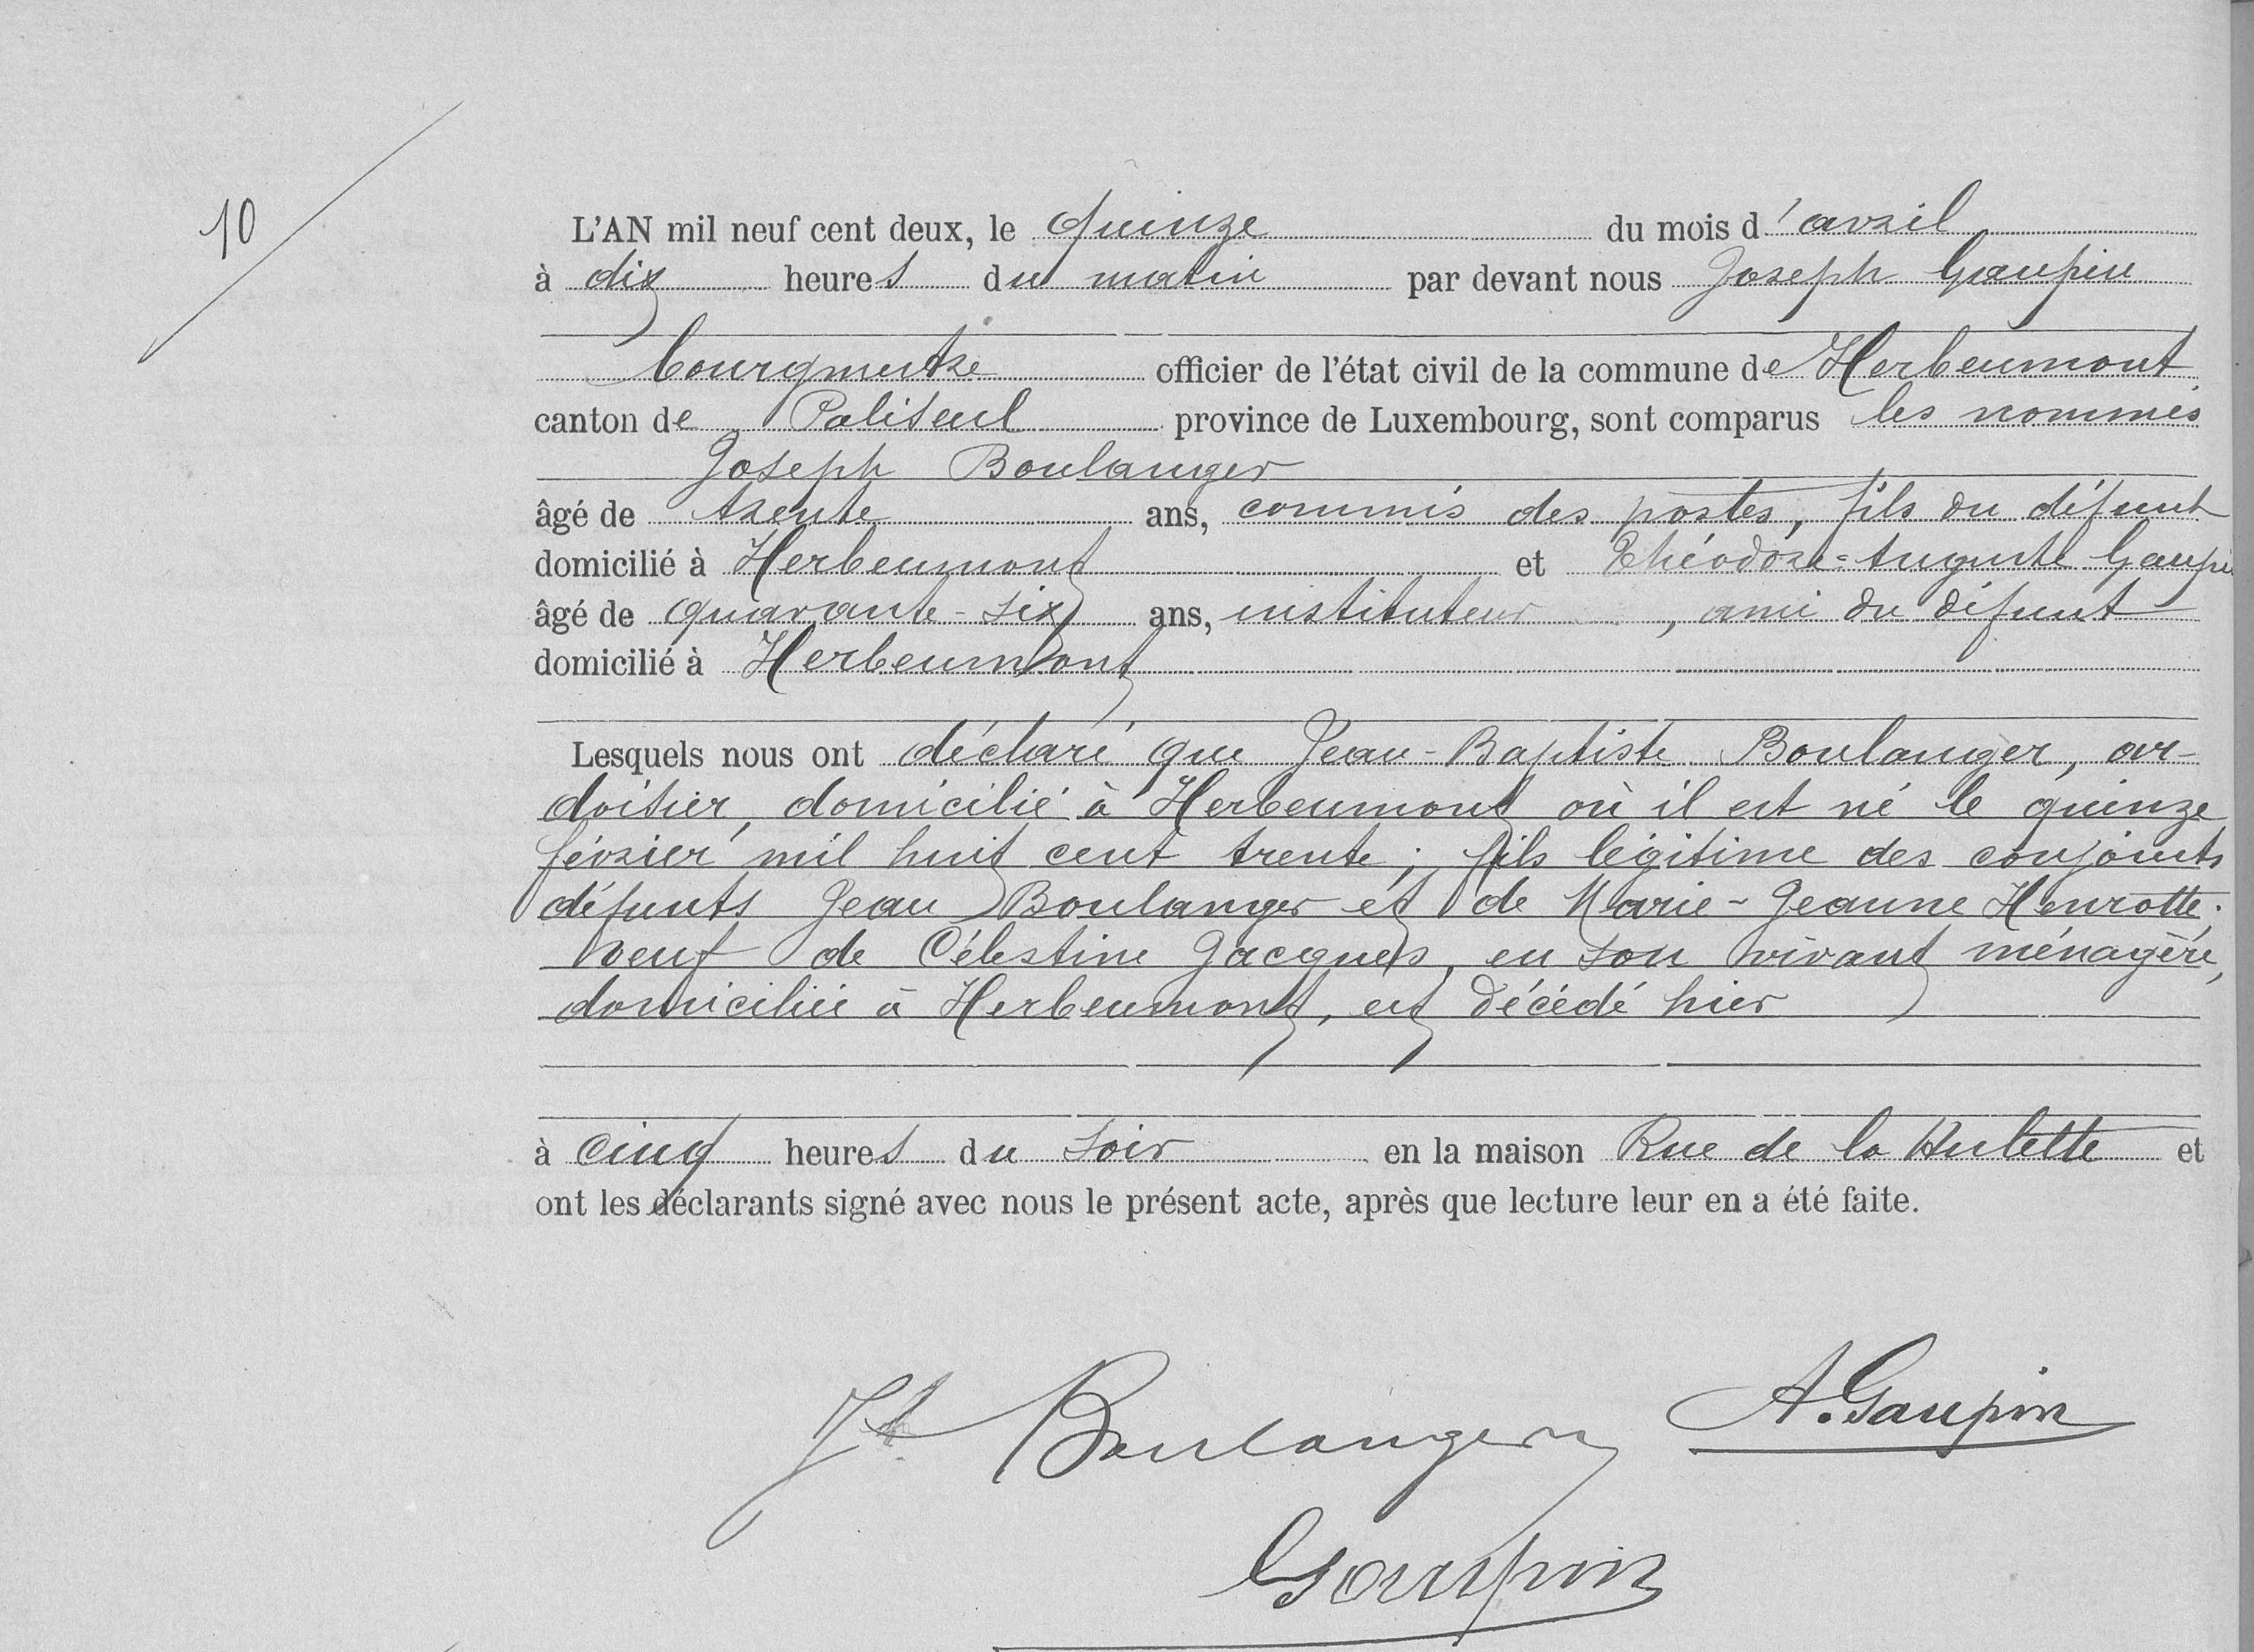 10
L'AN mil neuf cent deux, le quinze du mois d'avril
à dix heures du matin par devant nous Joseph Gaupin
bourgmestre officier de l'état civil de la commune de Herbeumont
canton de Paliseul province de Luxembourg, sont comparus les nommés
Joseph Boulanger
âgé de trente ans, commis des postes, fils du défunt
domicilié à Herbeumont et Théodore-Auguste Gaupin
âgé de quarante-six ans, instituteur, ami du défunt
domicilié à Herbeumont
Lesquels nous ont déclaré que Jean-Baptiste Boulanger, ar-
doisier, domicilié à Herbeumont où il est né le quinze
février mil huit cent trente; fils légitime des conjoints
défunts Jean Boulanger et de Marie-Jeanne Henrotte;
veuf de Célestine Jacques, en son vivant ménagère,
domiciliée à Herbeumont, est décédé hier
à cinq heures du soir en la maison Rue de la Hulette et
ont les déclarants signé avec nous le présent acte, après que lecture leur en a été faite.
Jh Boulanger A. Gaupin
Gaupin